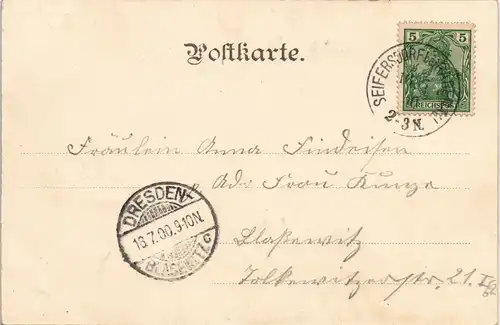 5 5
SEIFERSDORF
REICHSPOST
2-3N.
Postkarte.
Fräulein Anna Findeisen
Adr Frau Kunze
DRESDEN-
18.7.00.9-10N.
BLASEWITZ c
Blasewitz
Tolkewitzerstr. 21. I